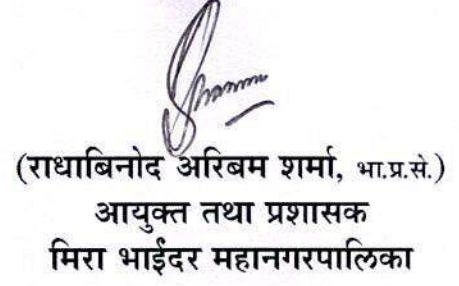 (राधाबिनोद अरिबम शर्मा, भा.प्र.से.)
आयुक्त तथा प्रशासक
मिरा भाईंदर महानगरपालिका